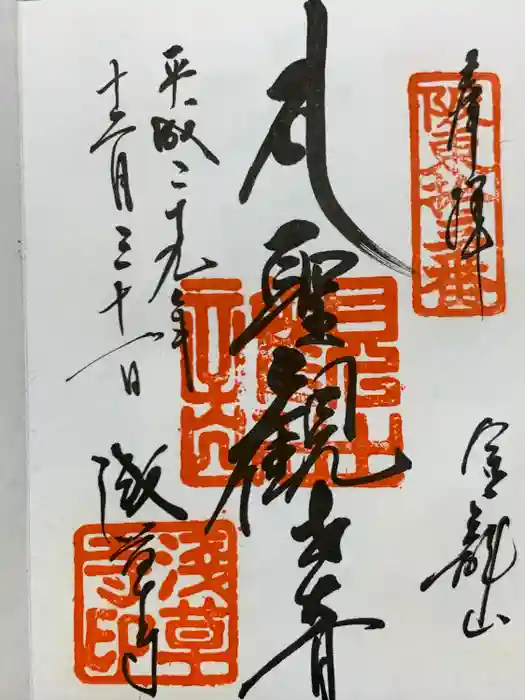 奉拝
坂東拾三番
金龍山
聖観世音
平成二十九年
十二月三十一日
浅草寺
浅草寺印